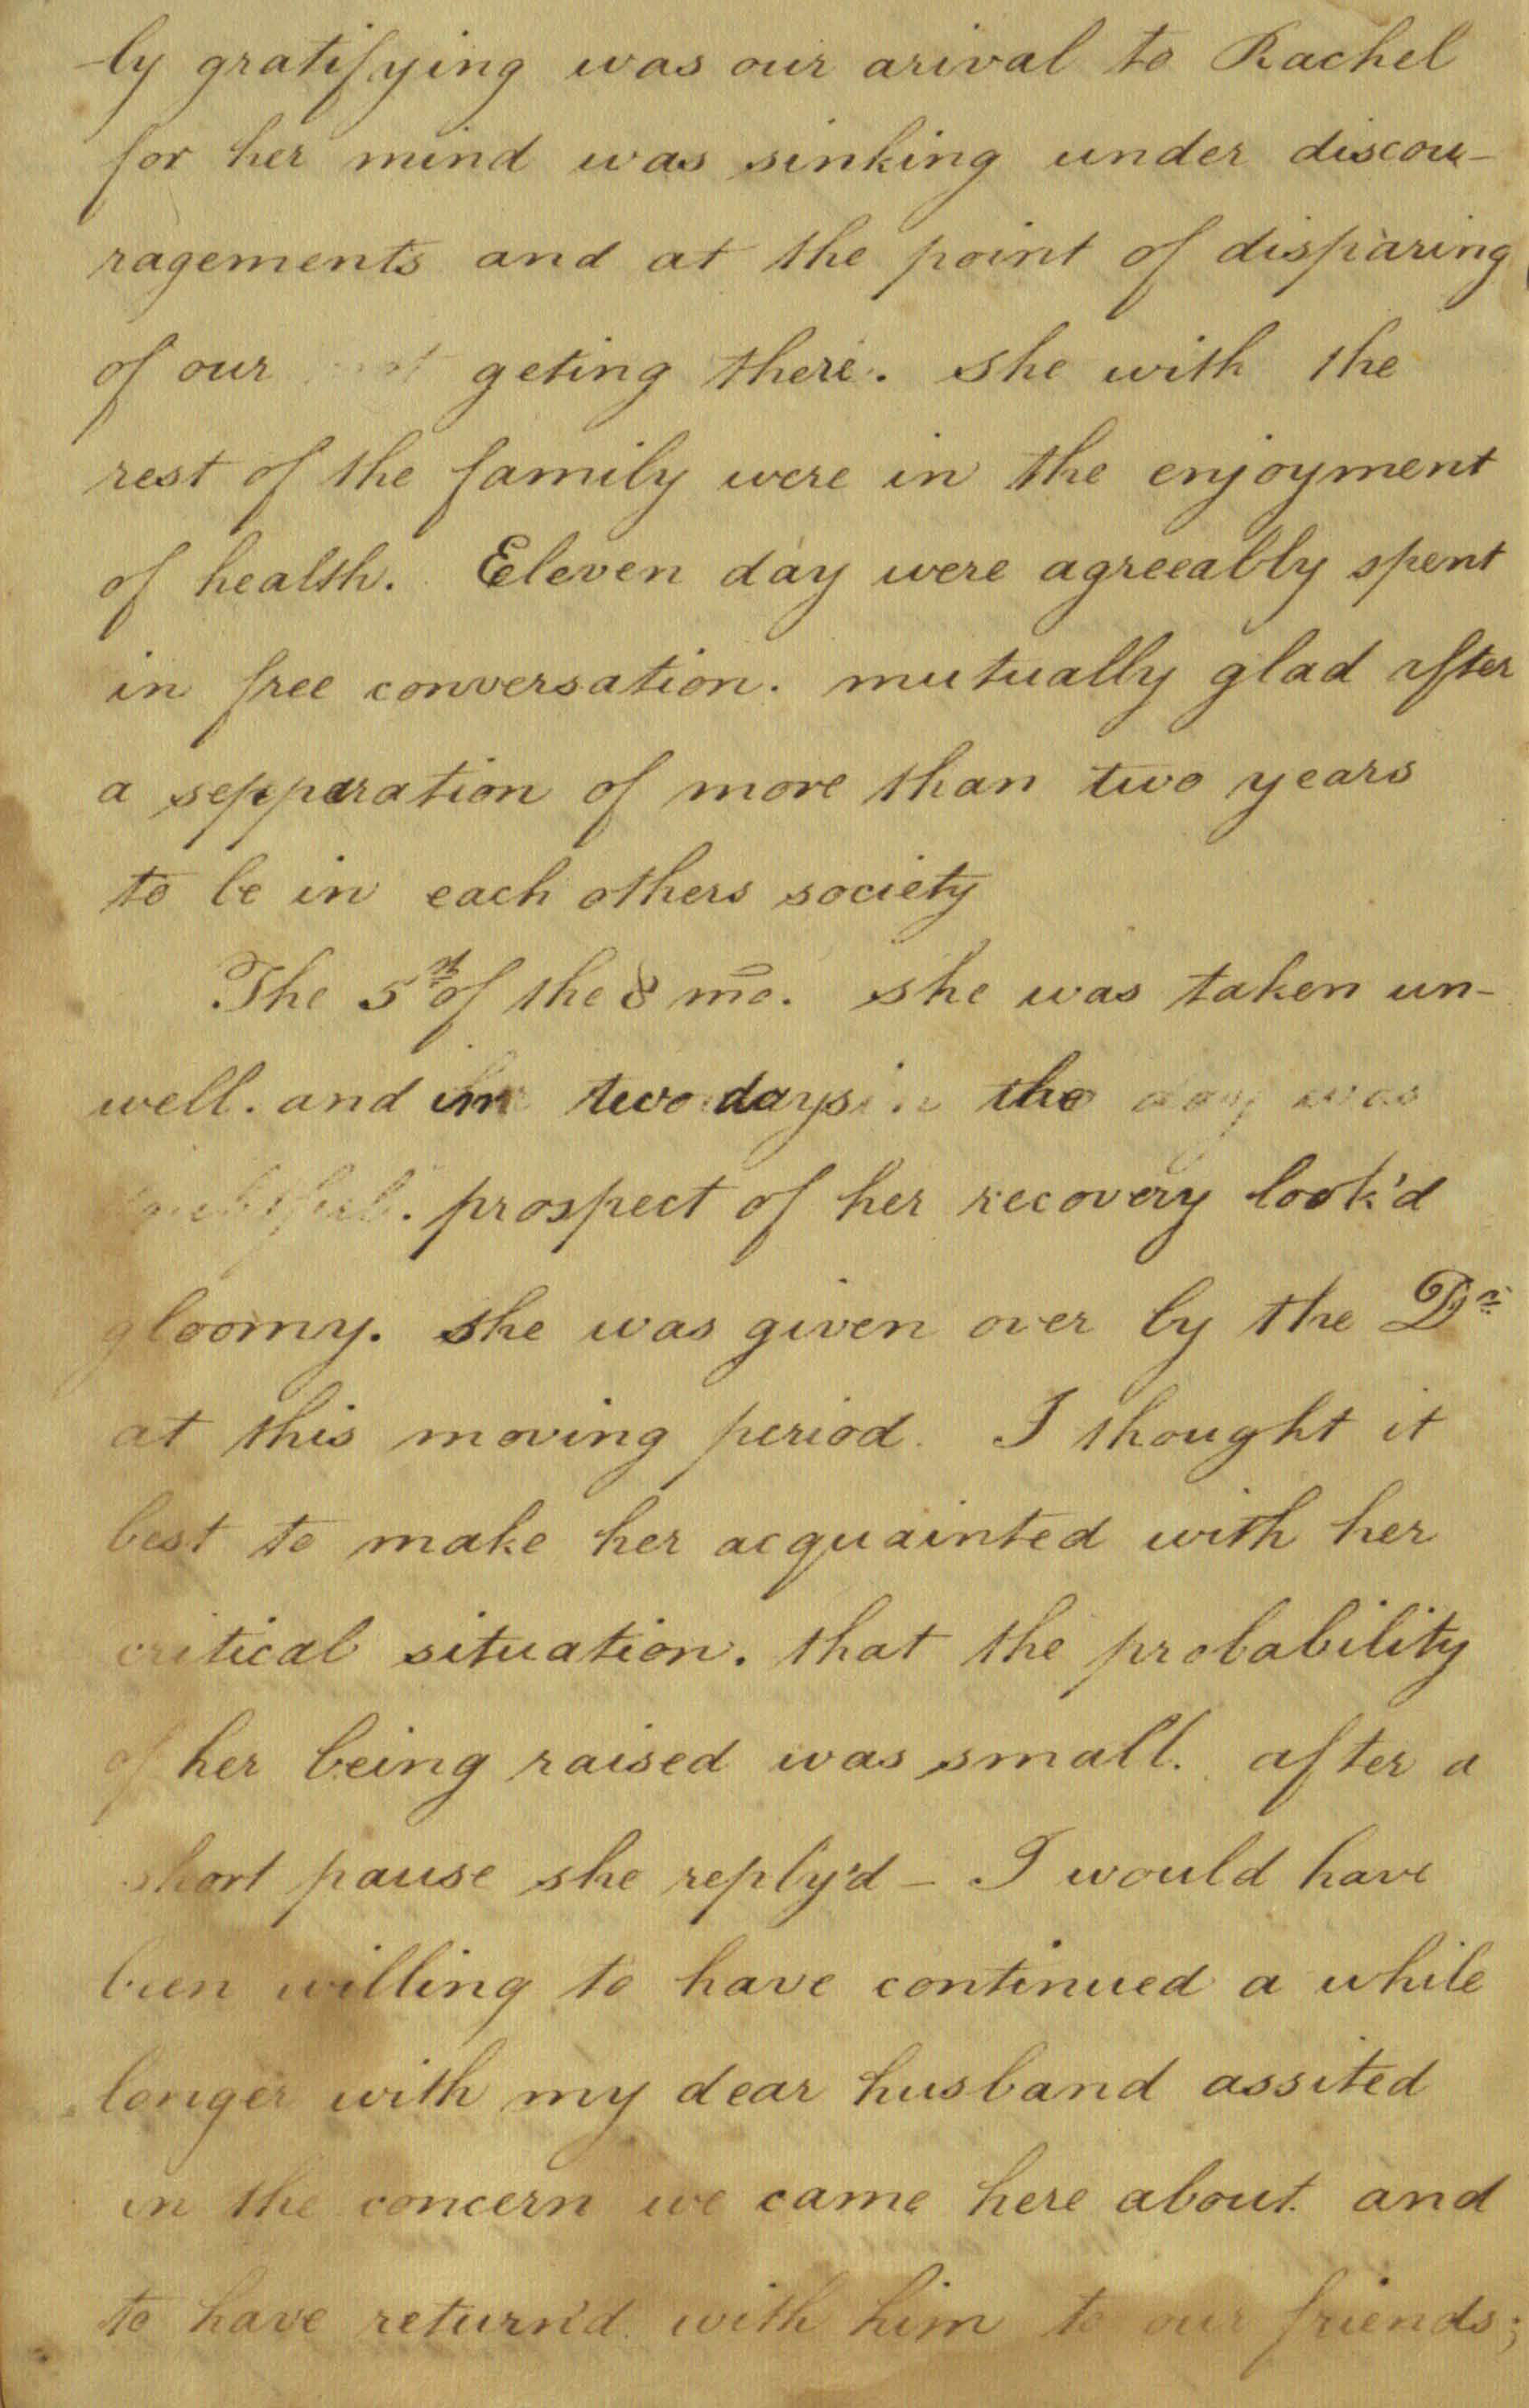 -ly gratifying was our arival to Rachel
for her mind was sinking under discou-
ragements and at the point of disparing
of our geting there. she with the
rest of the family were in the enjoyment
of health. Eleven day were agreeably spent
in free conversation. mutually glad after
a sepparation of more than two years
to be in each others society
The 5th of the 8 mo. she was taken un-
well. and in two days the
prospect of her recovery look'd
gloomy. she was given over by the Dr
at this moving period. I thought it
best to make her acquainted with her
critical situation. that the probability
of her being raised was small. after a
short pause she reply'd - I would have
been willing to have continued a while
longer with my dear husband assited
in the concern we came here about. and
to have return'd with him to our friends;